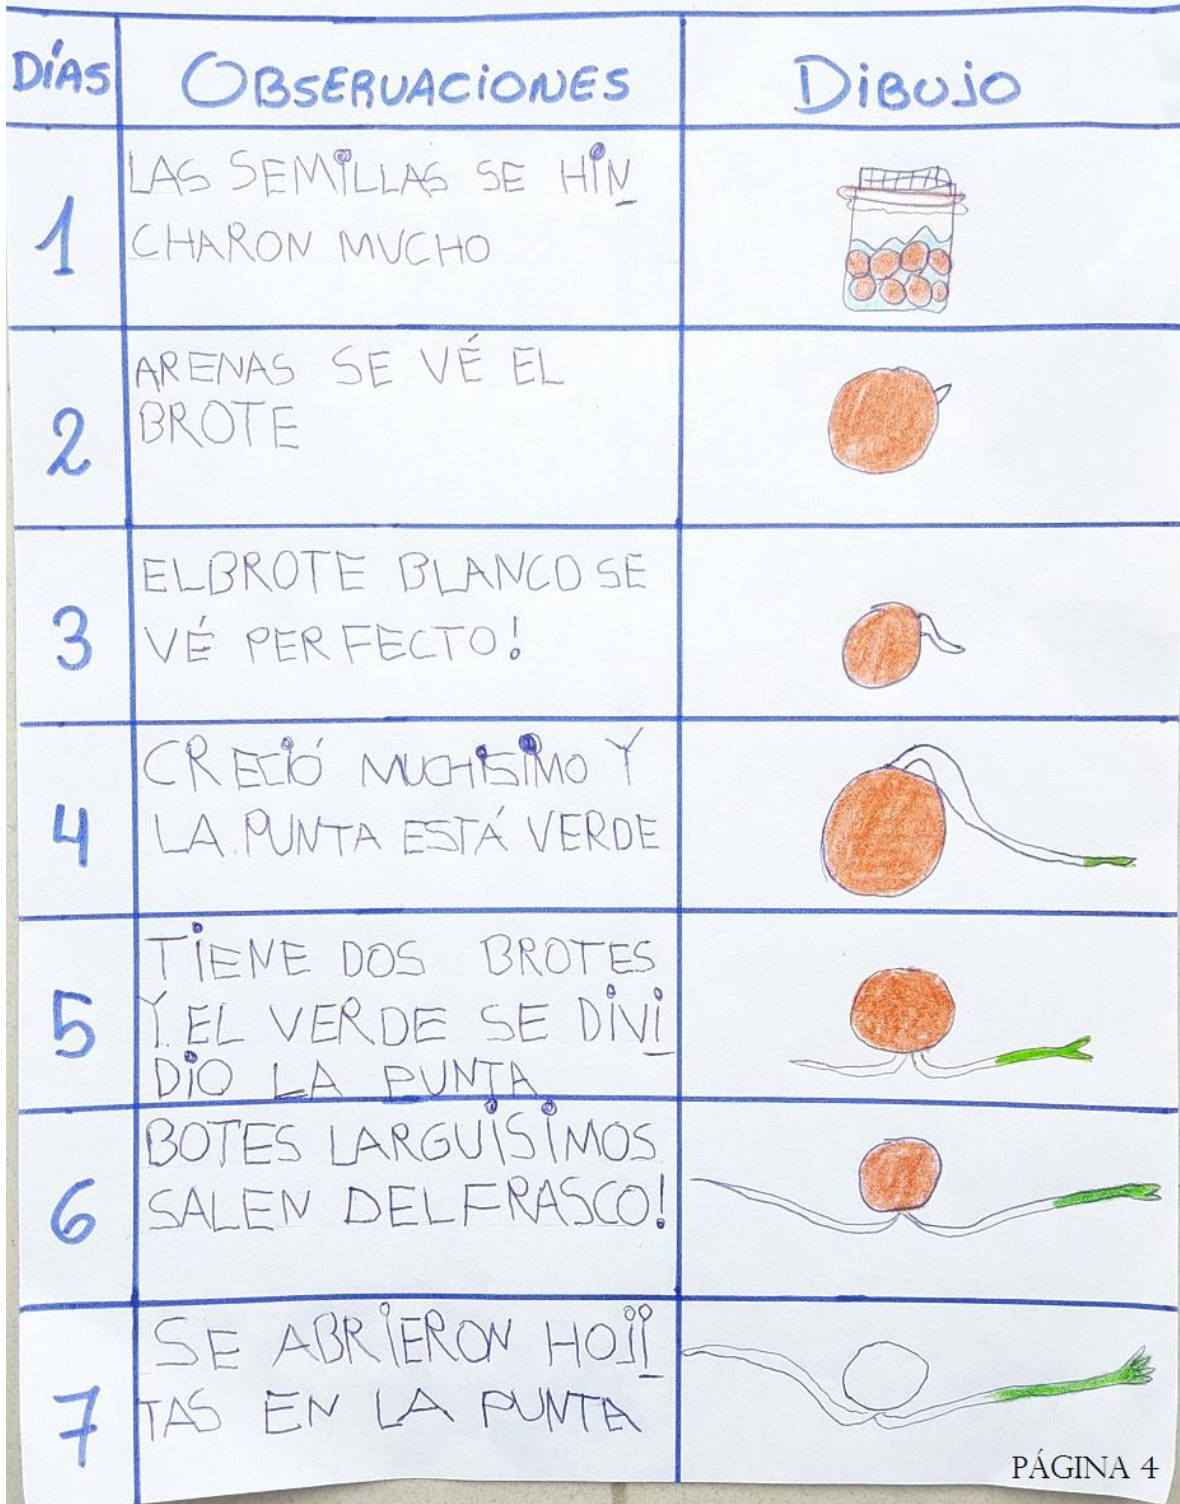 DÍAS OBSERVACIONES DIBUJO
1 LAS SEMILLAS SE HIN
CHARON MUCHO
2 ARENAS SE VÉ EL
BROTE
3 EL BROTE BLANCO SE
VÉ PERFECTO!
4 CRECIÓ MUCHISIMO Y
LA PUNTA ESTÁ VERDE
5 TIENE DOS BROTES
Y EL VERDE SE DIVI
DIO LA PUNTA
6 BOTES LARGUISIMOS
SALEN DEL FRASCO!
7 SE ABRIERON HOJI
TAS EN LA PUNTA
PÁGINA 4